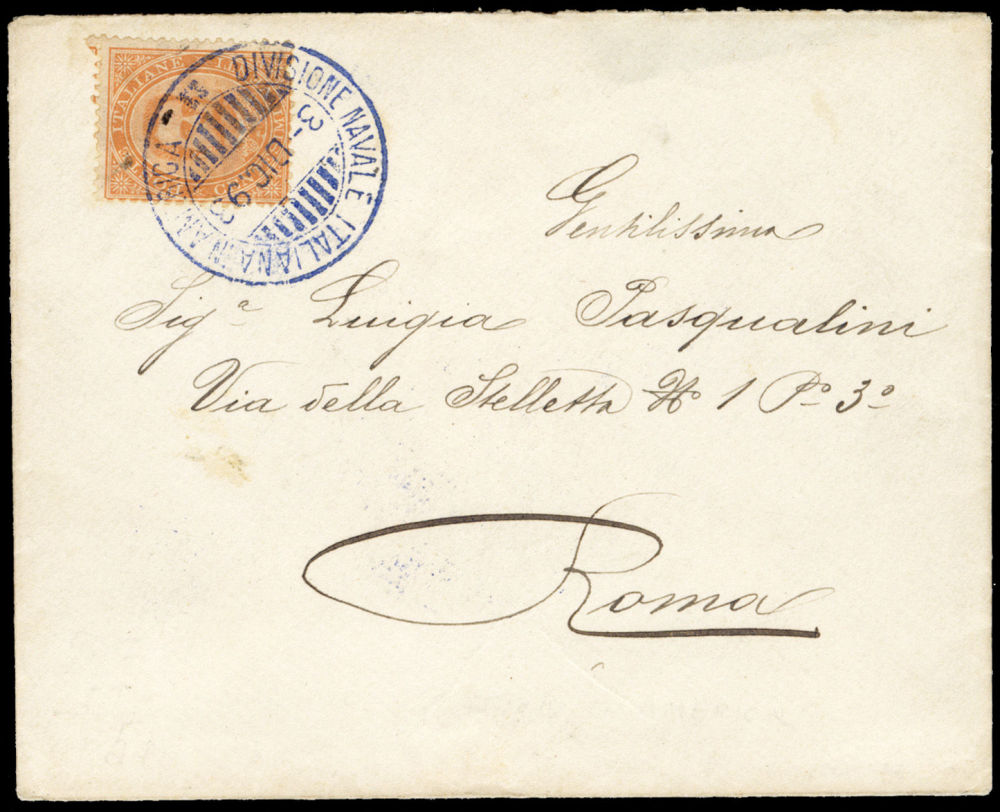 DIVISIONE NAVALE ITALIANA IN AMERICA
3 - DIC 93
ITALIANE
Gentilissima
Sig.ª Luigia Pasqualini
Via della Stelletta Nº 1 Pº 3º
Roma